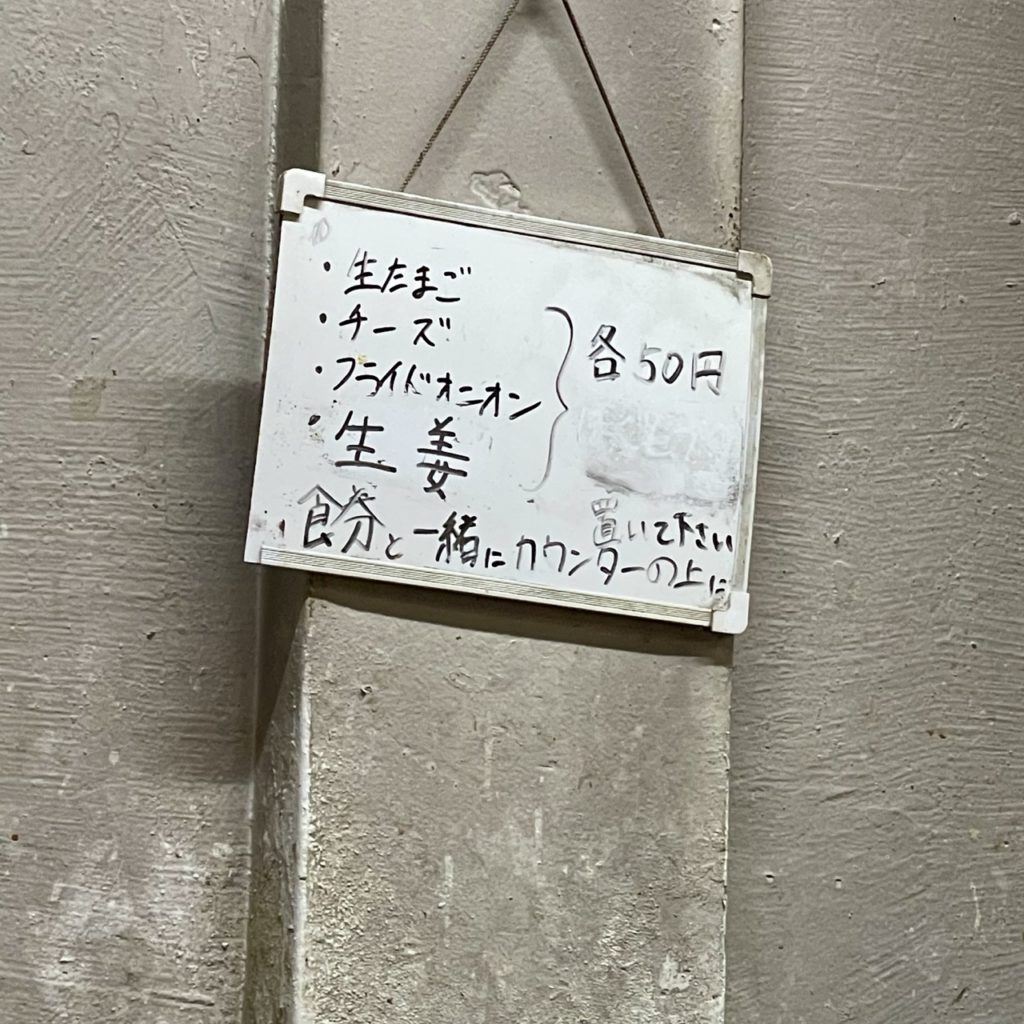 ・生たまご
・チーズ
・フライドオニオン
・生姜
各50円
食券と一緒にカウンターの上に
置いて下さい